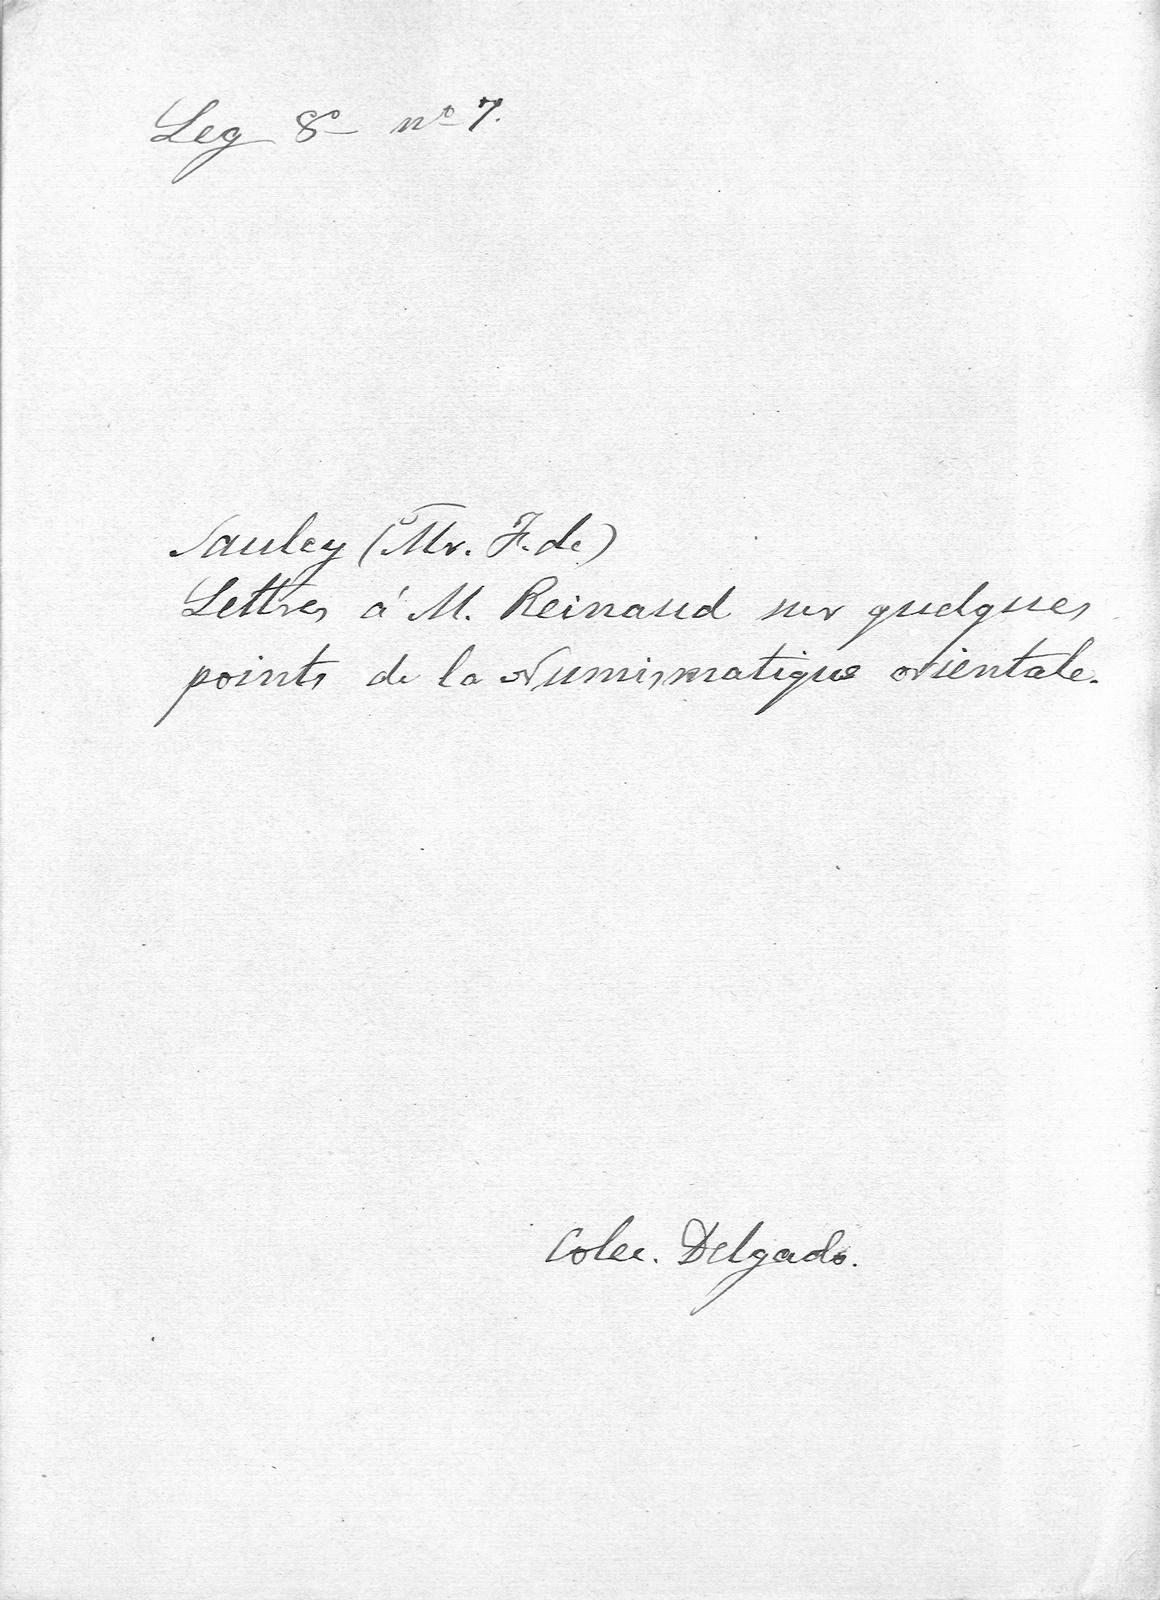 Leg 8º nº 7.
Saulcy (Mr. F. de)
Lettres á M. Reinaud sur quelques
points de la Numismatique orientale.
Colec. Delgado.